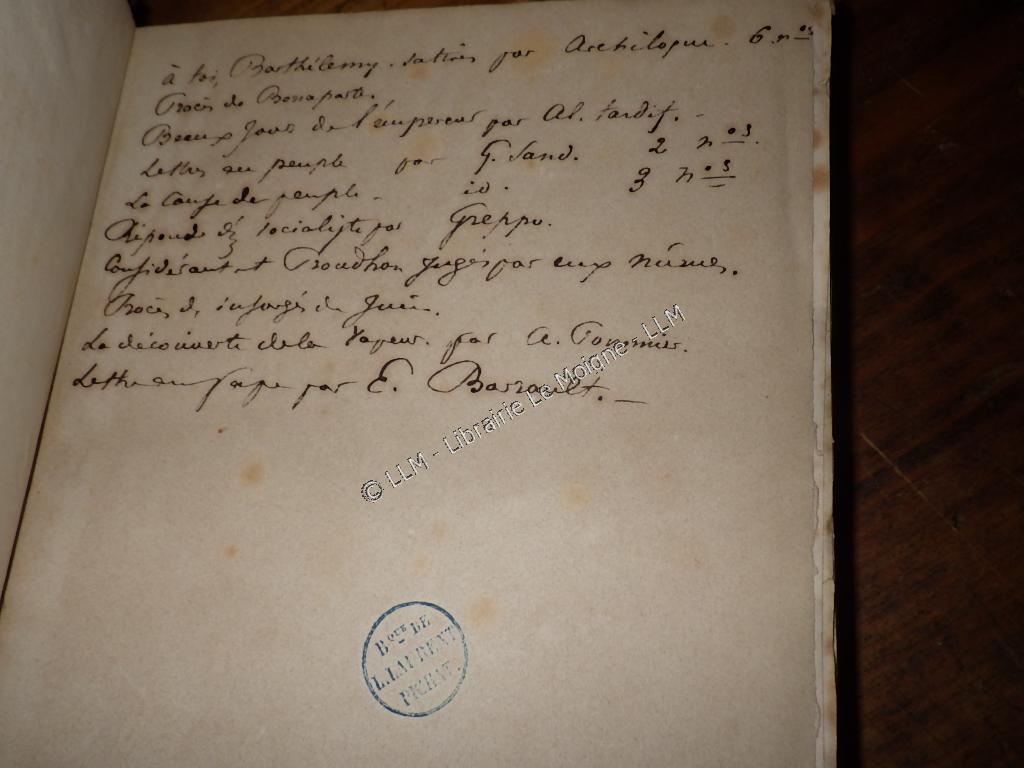 à toi, Barthélemy. satires par Archiloque. 6. nos
Procès de Bonaparte.
Beaux jours de l'empereur par Al. Tardif. -
Lettres au peuple par G. Sand. 2 nos.
La Cause du peuple - id. 3 nos
Réponse d'un socialiste par Greppo.
Considérant et Proudhon jugés par eux mêmes.
Procès des insurgés de Juin.
La découverte de la Vapeur. par A. Pommier.
Lettre au Pape par E. Barrault. -
© LLM - Librairie Le Moigne - LLM
BQUE DE
L. LAURENT
PICHAT.